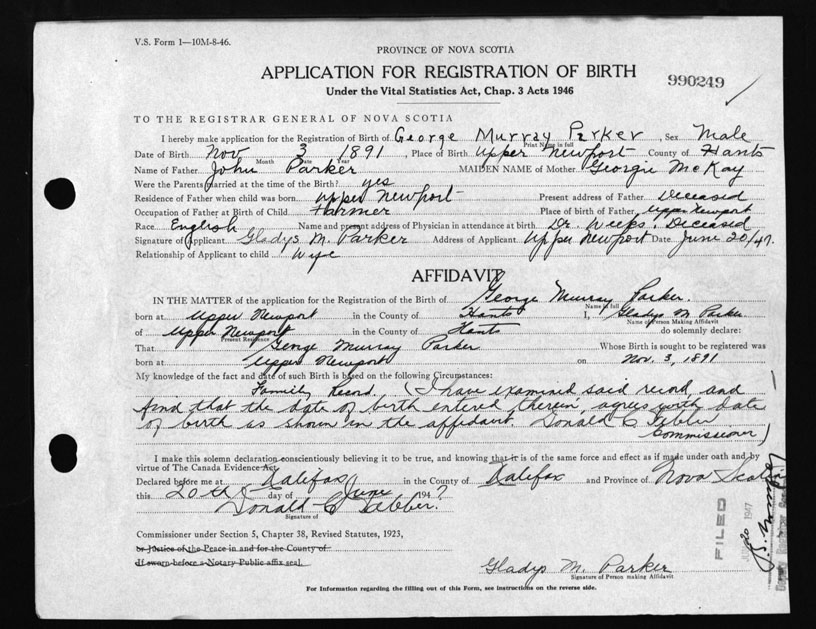 V.S. Form 1—10M-8-46.
PROVINCE OF NOVA SCOTIA
APPLICATION FOR REGISTRATION OF BIRTH
990249
Under the Vital Statistics Act, Chap. 3 Acts 1946
TO THE REGISTRAR GENERAL OF NOVA SCOTIA
I hereby make application for the Registration of Birth of George Murray Parker, Sex Male
Print Name in full
Date of Birth Nov 3 1891, Place of Birth Upper Newport County of Hants
Month Date Year
Name of Father John Parker MAIDEN NAME of Mother Georgie McKay
Were the Parents married at the time of the Birth? yes
Residence of Father when child was born Upper Newport Present address of Father Deceased
Occupation of Father at Birth of Child Farmer Place of birth of Father Upper Newport
Race English Name and present address of Physician in attendance at birth Dr. Weeks, Deceased
Signature of Applicant Gladys M. Parker Address of Applicant Upper Newport Date June 20/47.
Relationship of Applicant to child Wife
AFFIDAVIT
IN THE MATTER of the application for the Registration of the Birth of George Murray Parker.
Name in full
born at Upper Newport in the County of Hants I, Gladys M Parker
Name of Person Making Affidavit
of Upper Newport in the County of Hants do solemnly declare:
Present Residence
That George Murray Parker Whose Birth is sought to be registered was
born at Upper Newport on Nov. 3, 1891
My knowledge of the fact and date of such Birth is based on the following Circumstances:
Family Record. (I have examined said record and
find that the date of birth entered therein, agrees with date
of birth as shown in the affidavit. Donald C
Commissioner)
I make this solemn declaration conscientiously believing it to be true, and knowing that it is of the same force and effect as if made under oath and by
virtue of The Canada Evidence Act.
Declared before me at Halifax in the County of Halifax and Province of Nova Scotia
this 20th day of June 1947
Donald C
Signature of
Commissioner under Section 5, Chapter 38, Revised Statutes, 1923,
or Justice of the Peace in and for the County of
If sworn before a Notary Public affix seal.
FILED
20 1947
Gladys M. Parker
Signature of Person making Affidavit
For Information regarding the filling out of this Form, see instructions on the reverse side.